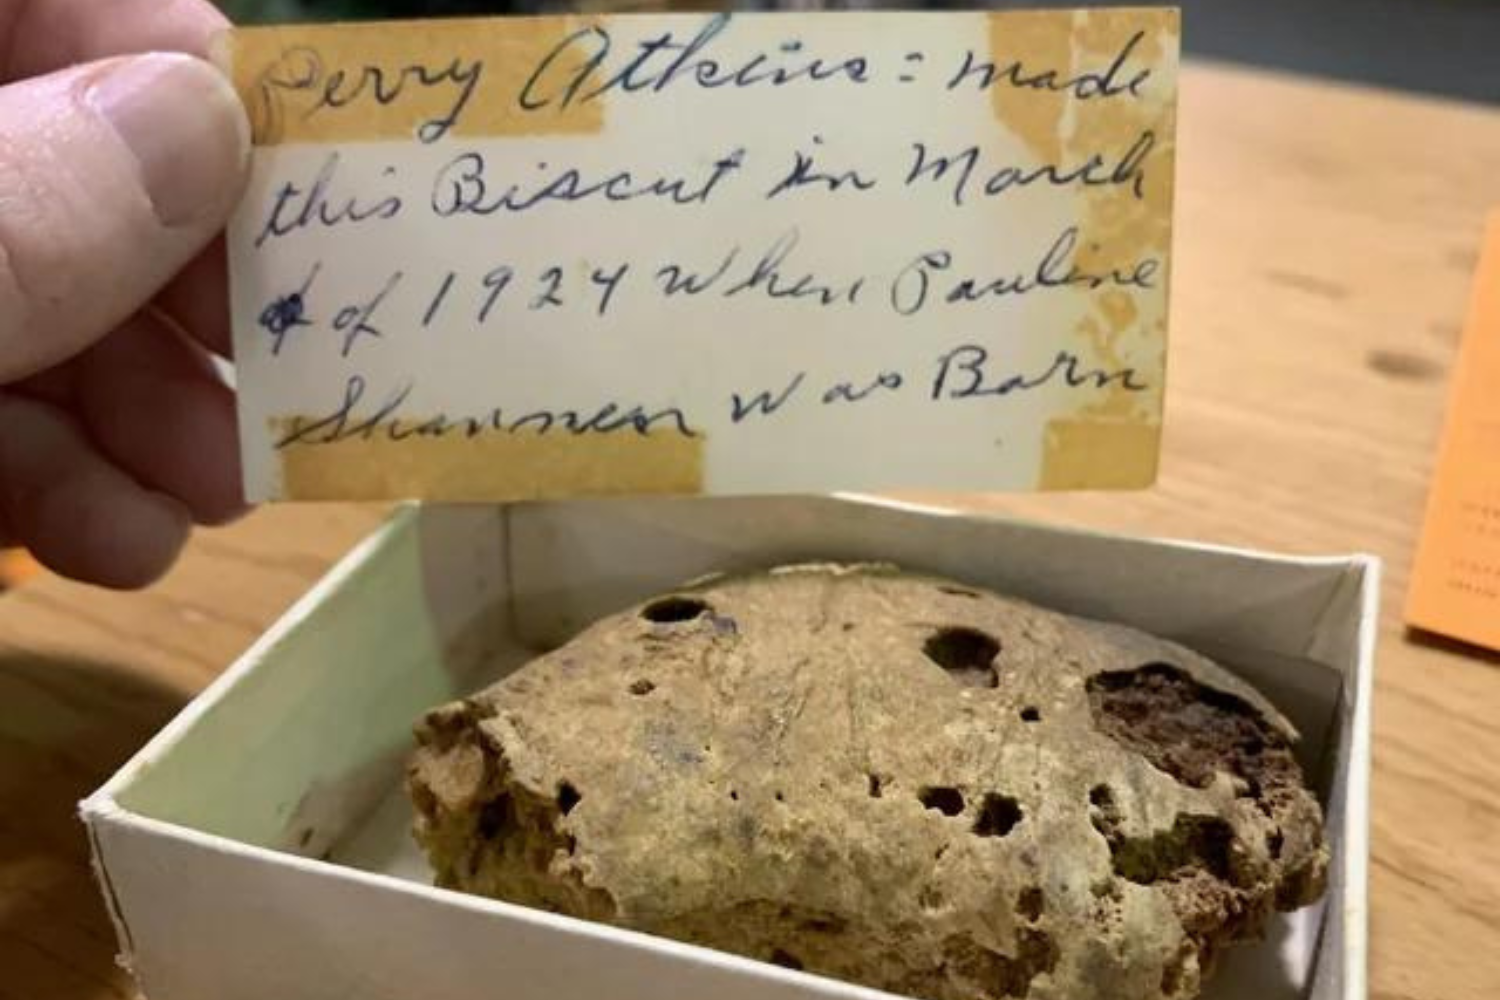 Perry Atkins = made
this Biscut in March
of 1924 when Pauline
Shannon was Born